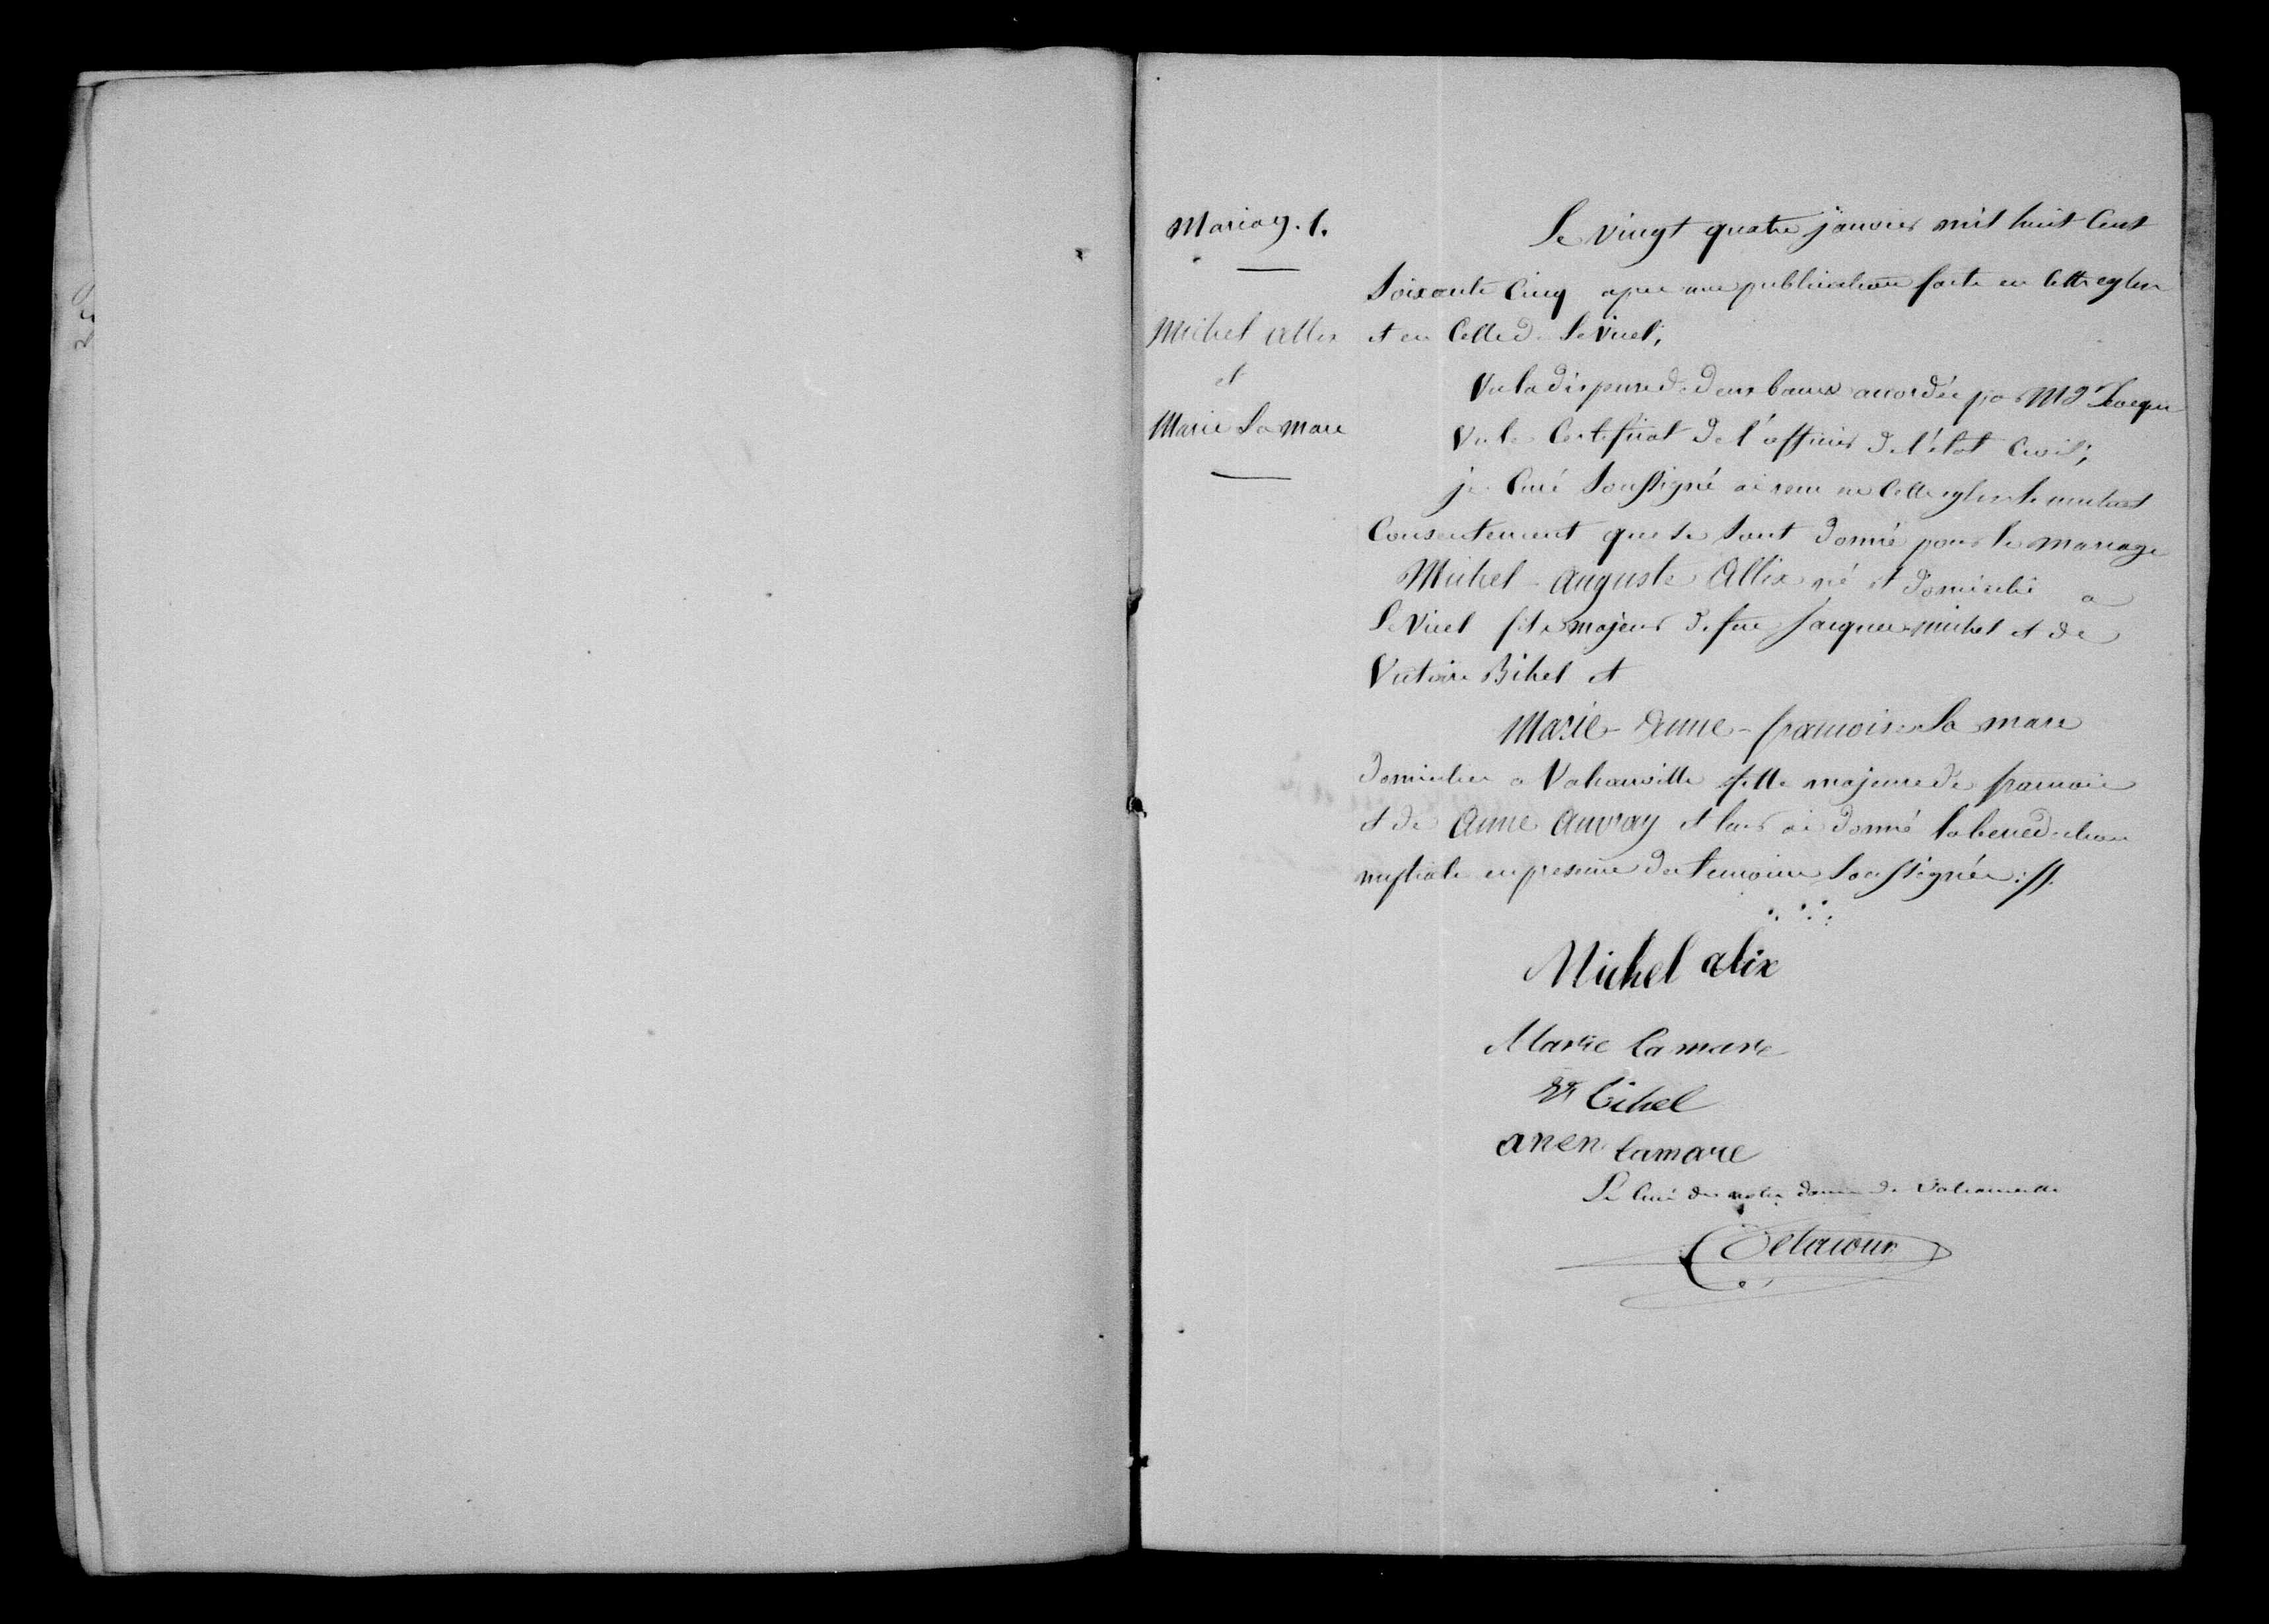 Mariag. 1.
Michel Allix
et
Marie La mare
Le vingt quatre janvier mil huit Cent
Soixante Cinq apres une publication faite en Cette eglise
et en Celle de Le Vicel;
Vu la dispense de deux bans accordée par Mgr L'eveque
Vu le Certificat de l'officier de l'état Civil;
je Curé Soussigné ai recu en Cette eglise le mutuel
Consentement que se sont donné pour le mariage
Michel - Auguste Allix né et domicilié a
Le Vicel fils majeur de feu Jacques michel et de
Victoire Bihel et
Marie - Anne - francoise La mare
domiciliée a Valcanville fille majeure de francois
et de Anne Auvray et leur ai donné la benediction
nuptiale en presence des temoins Soussignés :/.
Michel alix
Marie lamare
Bihel
anen lamare
Le Curé de notre dame de Valcanville
Delacour